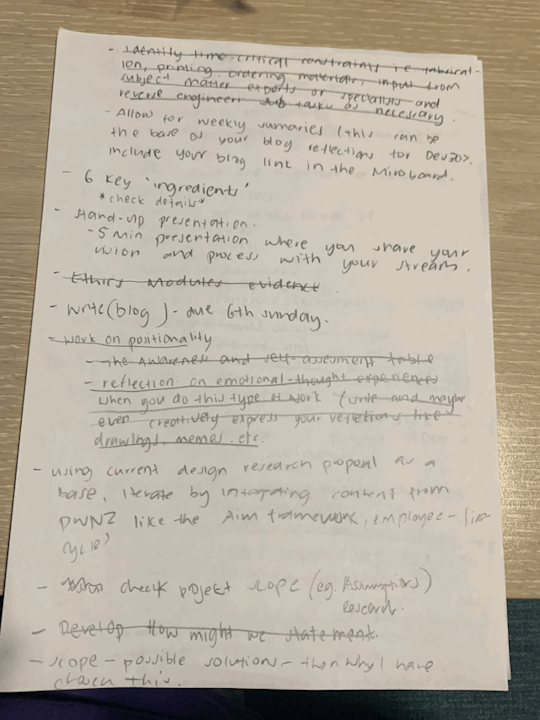 - Identify time-critical constraints i.e fabricat-
ion, printing, ordering materials, input from
subject matter experts or specialists and
reverse engineer sub tasks as necessary.
- Allow for weekly sumaries (this can be
the base of your blog reflections for Dev30>.
include your blog link in the Miroboard.
- 6 key 'ingredients'
*check details*
- Stand-up presentation.
- 5 min presentation where you share your
vision and process with your stream.
- Ethics Modules evidence.
- Write (blog) - due 6th sunday.
- work on positionality
- The Awareness and self-assesment table
- reflection on emotional-thought experiences
when you do this type of work (write and maybe
even creatively express your reflections like
drawings, memes, etc.
- using current design research proposal as a
base, iterate by integrating content from
DWNZ like the Aim framework, employee-life
cycle)
- check project scope (eg. Assumptions)
research.
- Develop How might we statement.
- scope - possible solutions - then why I have
chosen this.